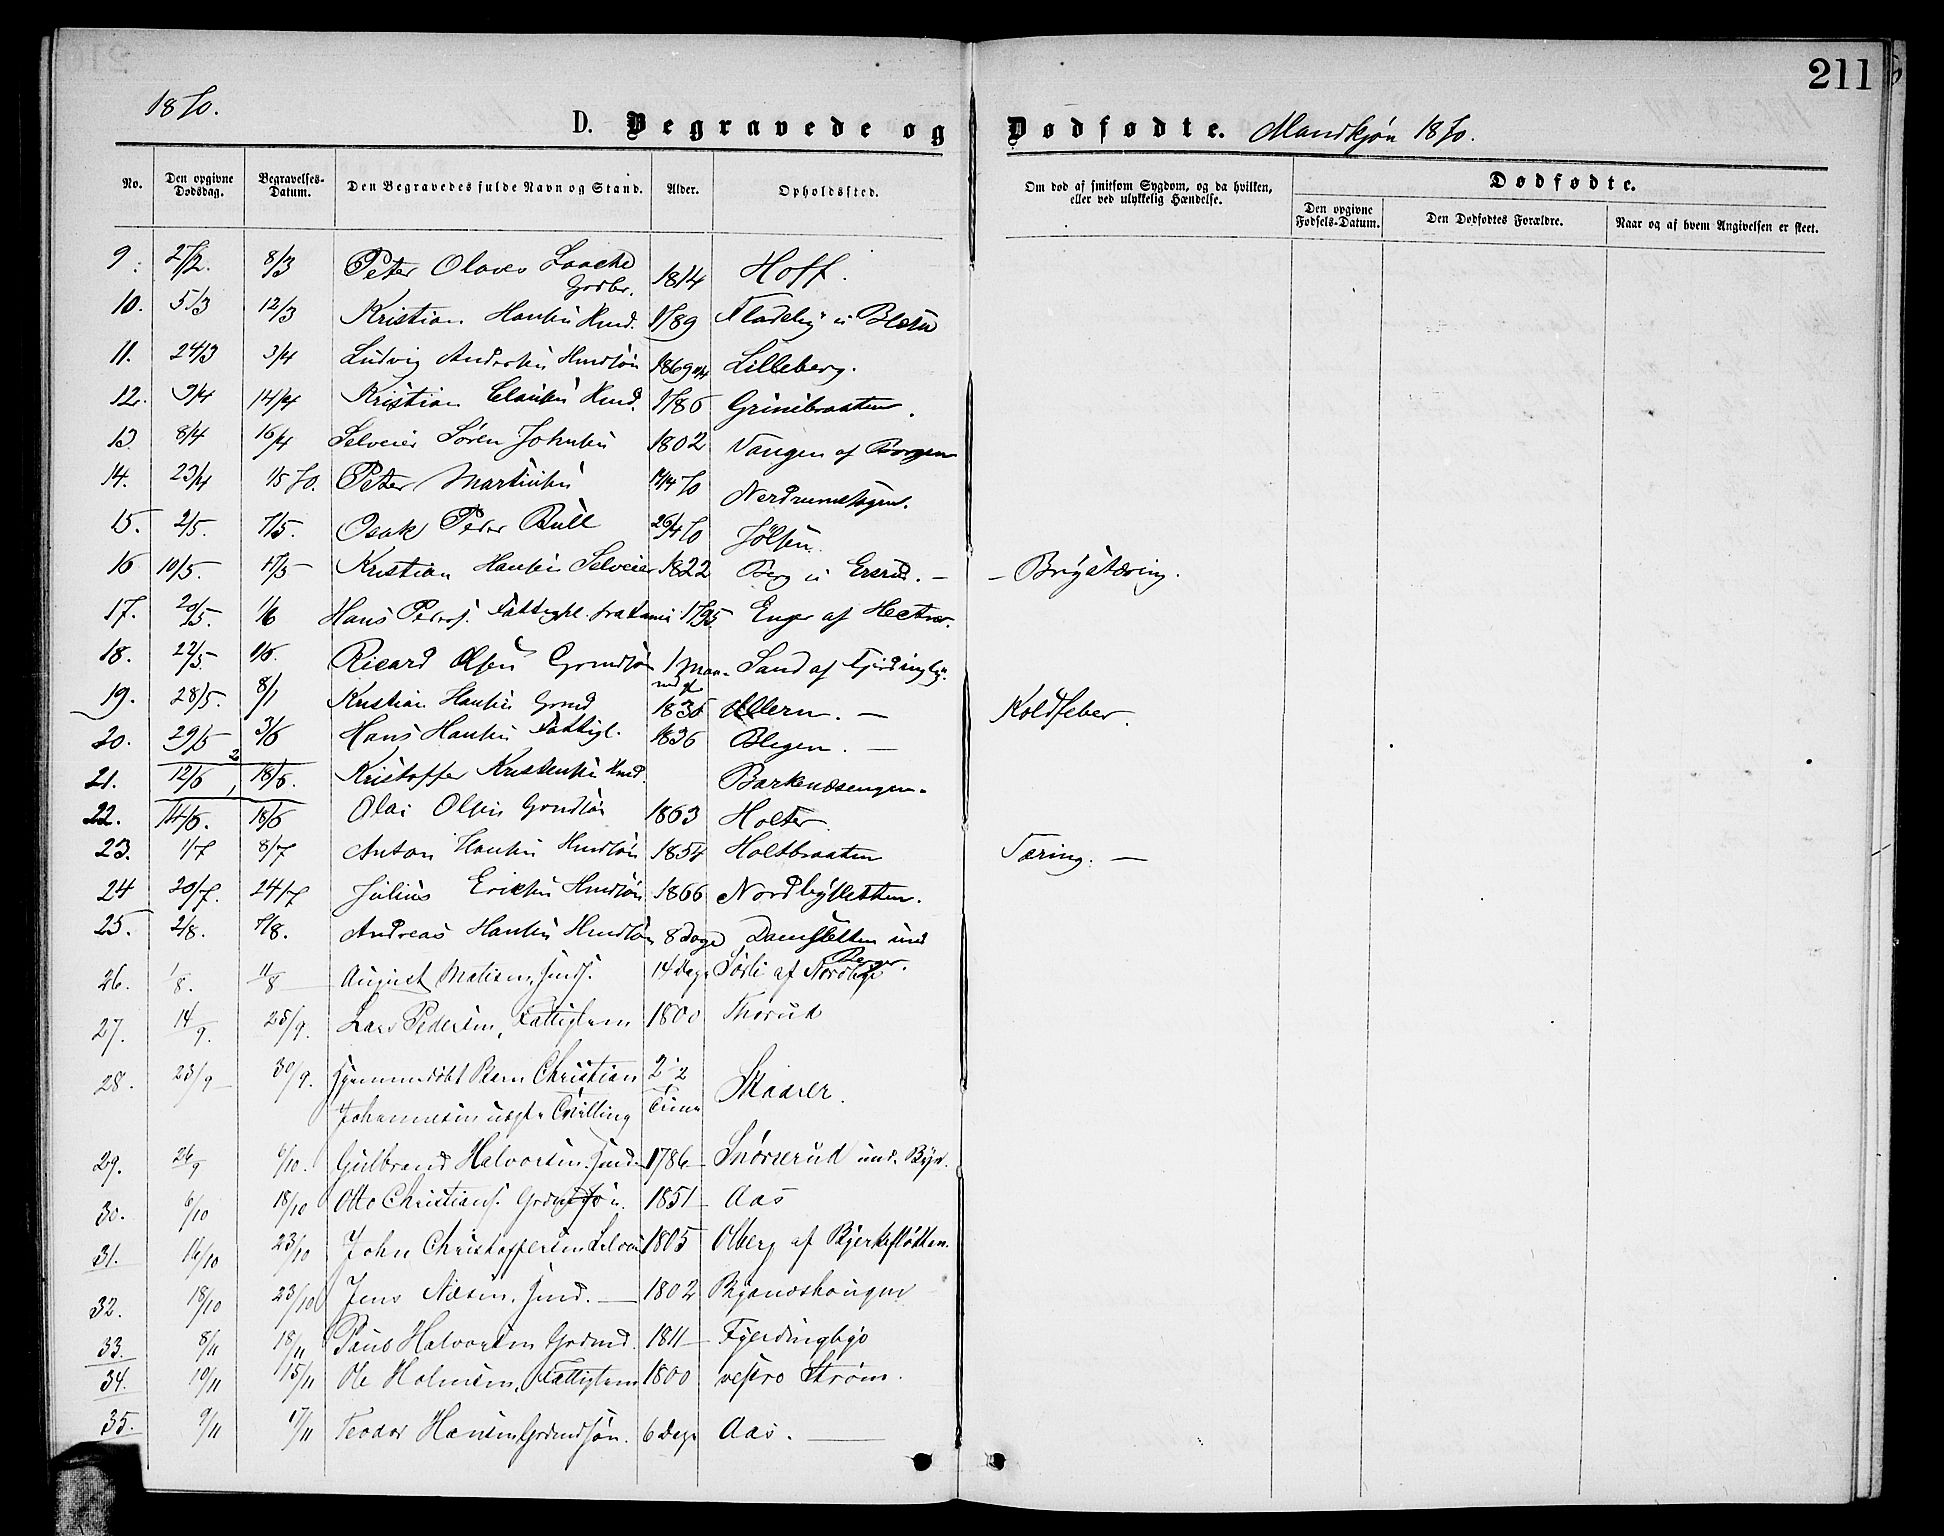 211
1870.
D. Begravede og Dødfødte. Mandkjøn 1870.
No.
Den opgivne Dødsdag.
Begravelses-Datum.
Den Begravedes fulde Navn og Stand.
Alder.
Opholdssted.
Om død af smitsom Sygdom, og da hvilken, eller ved ulykkelig Hændelse.
Dødfødte.
Den opgivne Fødsels-Datum.
Den Dødfødtes Forældre.
Naar og af hvem Angivelsen er skeet.
9. 27/2. 8/3 Peter Olaves Laache Grdbr. 1814 Hoff.
10. 5/3 12/3 Kristian Hansen Hmd. 1789 Fladeby u Blæsu
11. 24/3 3/4 Ludvig Andersen Hmdsøn 1869 Lilleberg.
12. 9/4 14/4 Kristian Clausen Hmd. 1786 Grinibraaten.
13. 8/4 16/4 Selveier Søren Johnsen 1802 Vangen af Borgen
14. 23/4 1/5 70. Peter Martinsen 14/4 70
15. 2/5. 7/5. Osak Peder Bull 26/4 70 Jølsen.
16 10/5. 17/5 Kristian Hansen Selveier 1822 Berg u Ererud. — – Brystæring.
17. 29/5. 1/6 Hans Peders. Fattigl. 1795 Enger af Hectner.
18. 22/5 1/6. Ricard Olsen Grmdsøn 1 Maaned gl Sand af Fjerdingby.
19. 28/5. 8/1 Kristian Hansen Grmd 1835 Ullern. — Koldfeber.
20. 29/5 3/6 Hans Hansen Fattigl. 1836 Blegen. —
21. 12/6 18/6. Kristoffer Kristensen Hmd. Barkenæsengen.
22. 14/6. 18/6 Olai Olsen Grmdsøn 1863 Holter.
23. 1/7 8/7 Anton Hansen Hmdsøn 1854 Holtbraaten Tæring. —
24 20/7. 24/7 Julius Ericksen Hmdsøn 1866 Nordbysletten.
25. 2/8. 7/8. Andreas Hansen Hmdsøn 8 Dage Damsletten und Berger.
26. 1/8. 11/8 August Matisen, Jnds. 14 Dage Sørli af Nordby
27. 14/9. 25/9. Lars Pedersen, Fattiglem 1800 Thorud
28. 23/9 30/9. Hjemmedøbt Barn Christian 2 1/2
Johannesen uægte Tvilling Time Skaarer.
29. 26/9 6/10. Gulbrand Halvorsen. 1786 Snørserud und. Byer.
30. 6/10 18/10 Otto Christians. Grdmdsøn. 1851 Aas
31. 16/10 23/10 John Christoffersen Selvei 1805 Olberg af Bjerkesløtten.
32. 18/10 23/10 Jens Næsen, Jnd. — 1802 Bjønnshougen
33. 8/11 18/11 Paus Halvorsen Grdmd. 1811 Fjerdingby
34. 10/11 15/11 Ole Holmsen, Fattiglem 1800 vestre Strøm.
35. 9/11 17/11 Teodor Hansen, Grdmdsøn. 6 Dage Aas. —